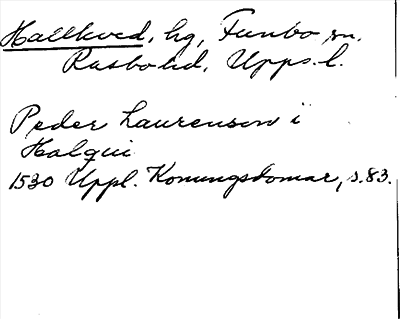 Hallkved, hg, Funbo sn.
Rasbo hd, Upps. l.
Peder Laurensson i
Halqui
1530 Uppl. Konungsdomar, s. 83.